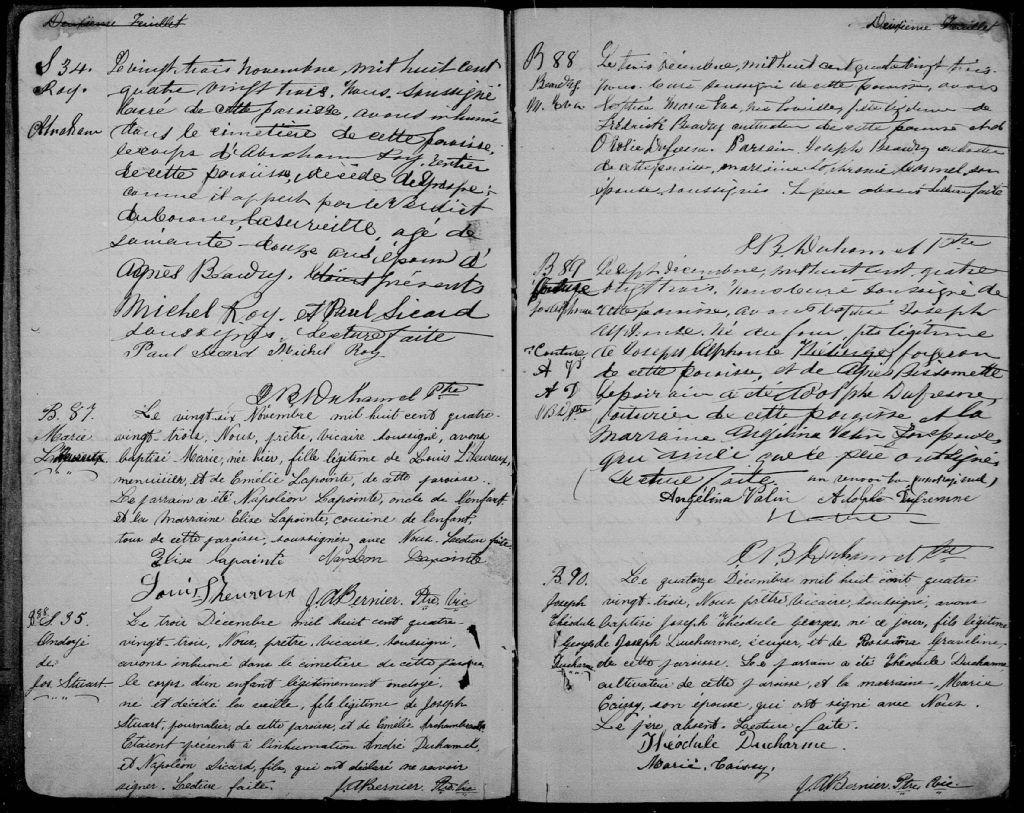 Deuxième Feuillet
S 34.
Roy.
Abraham
Le vingt trois novembre, mil huit cent
quatre vingt trois, Nous soussigné
curé de cette paroisse, avons inhumé
dans le cimetière de cette paroisse,
le corps d'Abraham Roy, rentier
de cette paroisse, décédé
comme il appert par le verdict
du Coroner, la surveille, agé de
soixante-douze ans, époux d'
Agnès Beaudry. présents
Michel Roy, et Paul Sicard
soussignés. Lecture faite
Paul Sicard Michel Roy
J B Duhamel Ptre
B. 87
Marie
L'Heureux
Le vingt six Novembre mil huit cent quatre-
vingt-trois, Nous, prêtre, vicaire soussigné, avons
baptisé Marie, née hier, fille légitime de Louis L'Heureux,
menuisier, et de Emélie Lapointe, de cette paroisse.
Le parrain a été Napoléon Lapointe, oncle de l'enfant
et la marraine Elise Lapointe, cousine de l'enfant,
tous de cette paroisse, soussignés avec Nous. Lecture faite.
Elise lapointe Napoléon Lapointe
Louis Lheureux
J. A Bernier. Ptre Vic
B 88 S. 35.
Ondoyé
de
Jos. Stuart.
Le trois Décembre mil huit cent quatre-
vingt-trois, Nous, prêtre, vicaire, soussigné,
avons inhumé dans le cimetière de cette paroisse
le corps d'un enfant légitimement ondoyé,
né et décédé la veille, fils légitime de Joseph
Stuart, journalier, de cette paroisse, et de Emélie Archambault
Etaient présents à l'inhumation André Duhamel,
et Napoléon Sicard, fils, qui ont déclaré ne savoir
signer. Lecture faite.
J. A Bernier. Ptre Vic
Deuxième Feuillet
B 88
Beaudry
M. Eva
Le trois décembre, mil huit cent quatre vingt trois
Nous Curé soussigné de cette paroisse, avons
baptisé Marie Eva, née la veille, fille légitime de
Frédérick Beaudry cultivateur de cette paroisse et d'
Odélie Dufresne. Parrain Joseph Beaudry cultivateur
de cette paroisse, marraine son
épouse, soussignés. Le père absent Lecture faite
J B Duhamel Ptre
B 89
Couture
Jos Alphonse
Le sept Décembre, mil huit cent, quatre
vingt trois, Nous Curé soussigné de
cette paroisse, avons baptisé Joseph
Alphonse, né du jour, fils légitime
de Joseph Alphonse forgeron
de cette paroisse, et de Agnès Bissonnette
Le parrain a été Adolphe Dufresne,
voiturier de cette paroisse et la
marraine Angélina Valin son épouse
qui ainsi que le père ont signés
Lecture faite. un renvoi bon
Couture
A V
A D
J B D Ptre
Angélina Valin Adolphe Dufresne
J B Duhamel Ptre
B. 90.
Joseph
Théodule
Georges
Ducharme
Le quatorze Décembre mil huit cent quatre
vingt-trois, Nous prêtre vicaire, soussigné, avons
baptisé Joseph Théodule Georges, né ce jour, fils légitime
de Joseph Ducharme, écuyer, et de Graveline,
de cette paroisse. Le parrain a été Théodule Ducharme
cultivateur de cette paroisse, et la marraine, Marie
Caissy, son épouse, qui ont signé avec Nous.
Le père absent. Lecture faite.
Théodule Ducharme.
Marie, Caissy,
J. A Bernier Ptre Vic